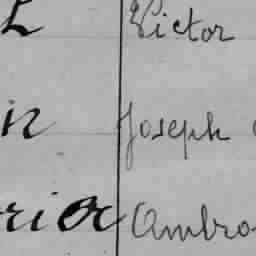 Victor
in Joseph
Ambro